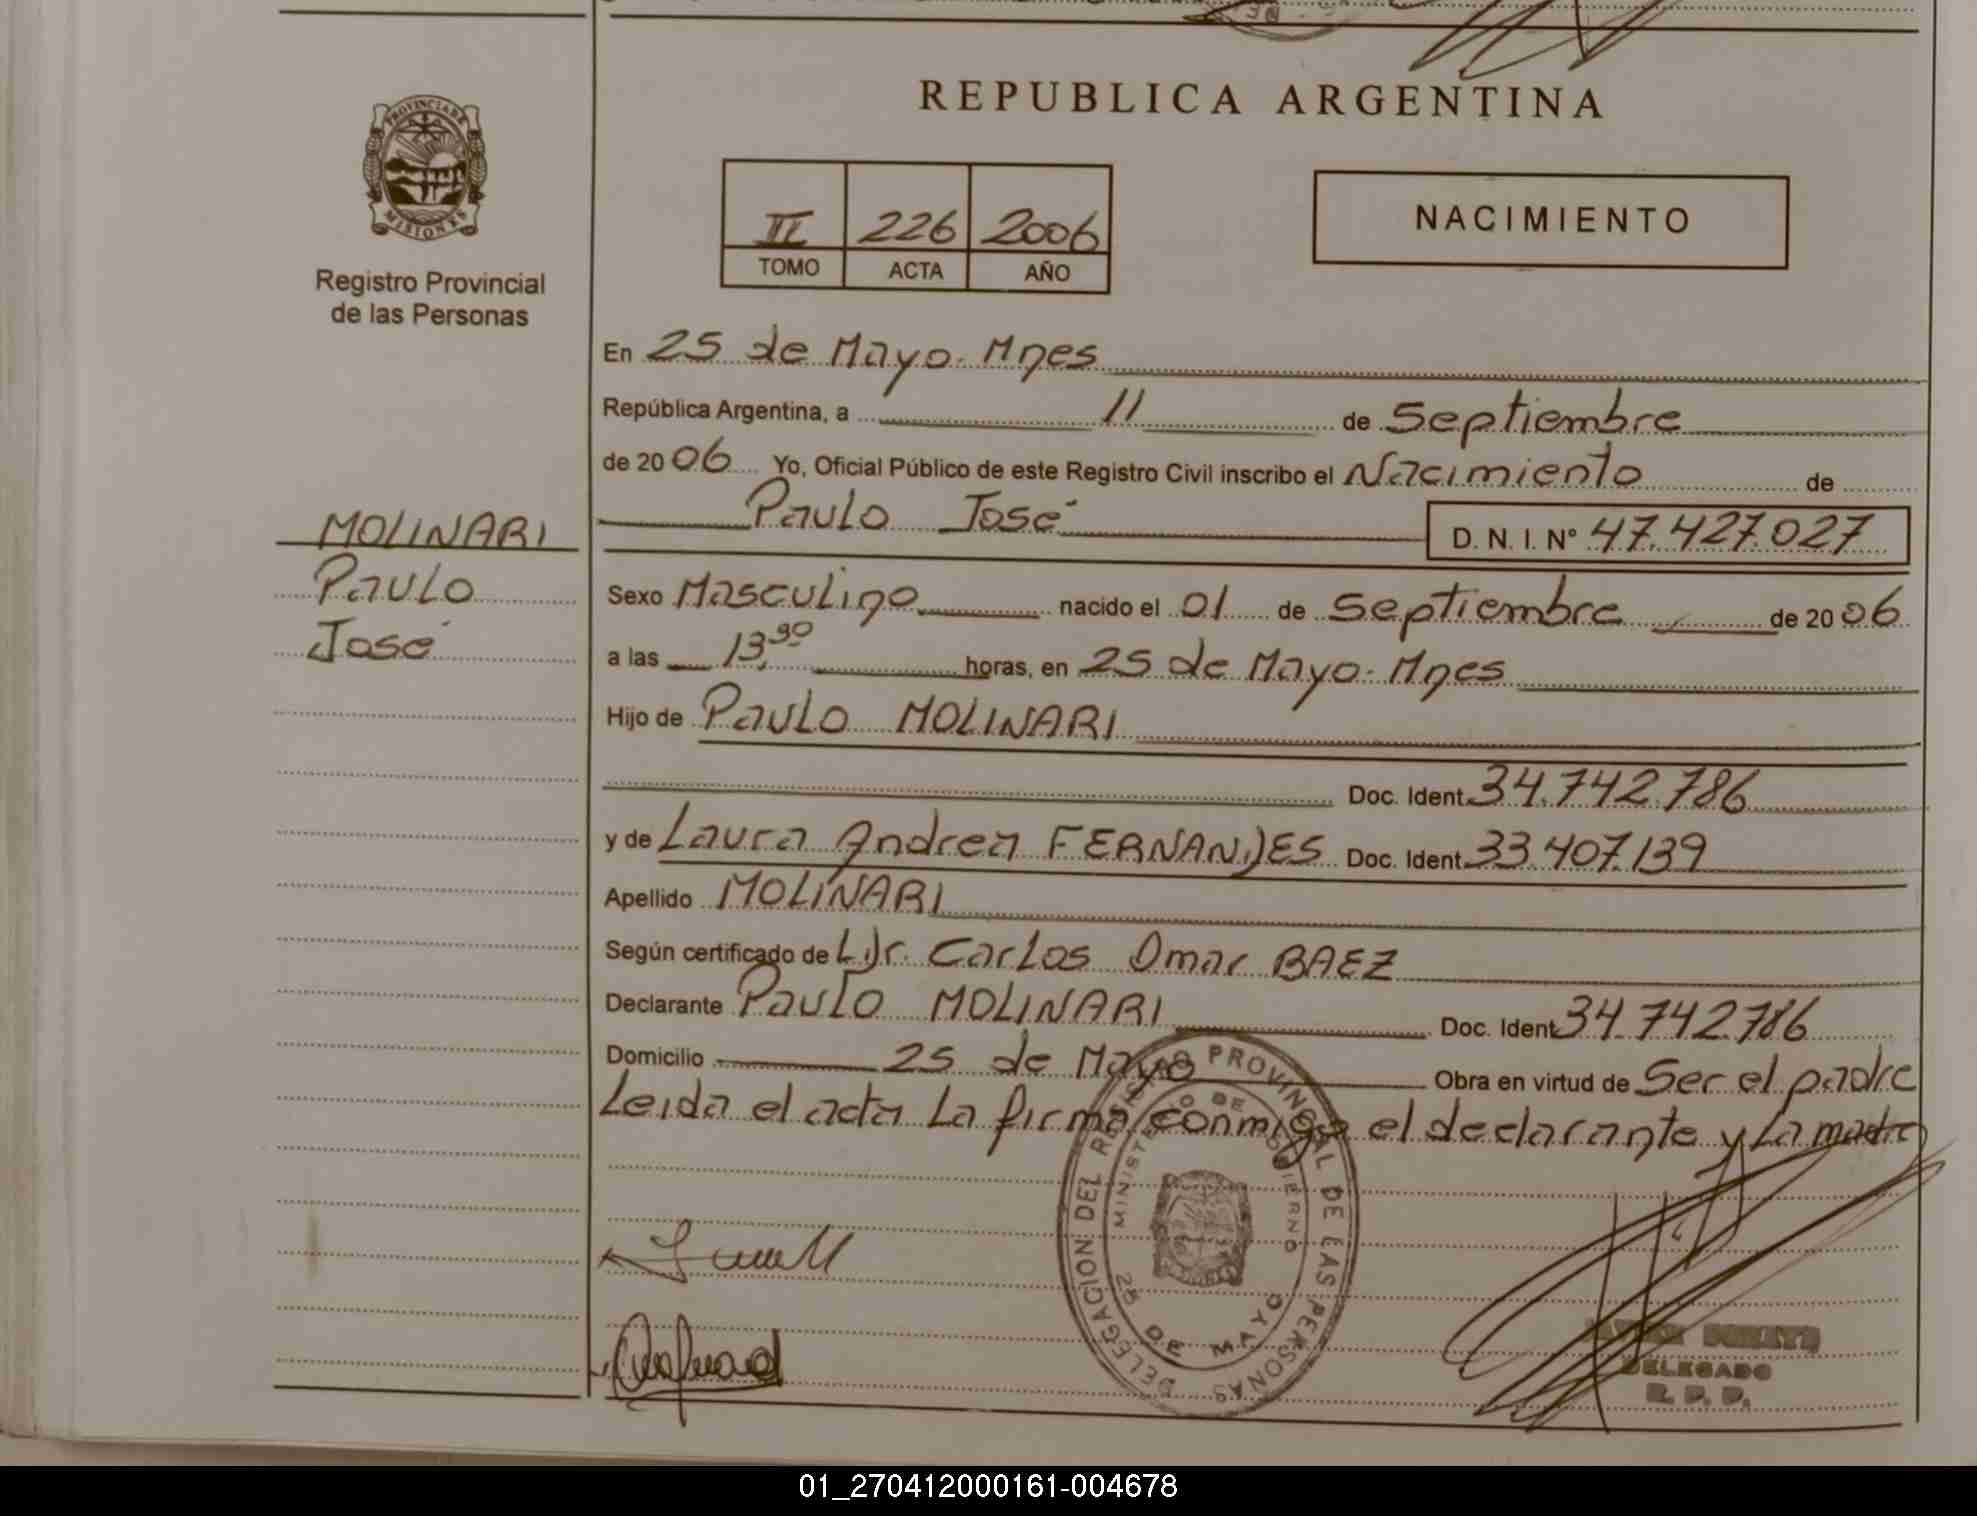 REPUBLICA ARGENTINA
PROVINCIA DE
MISIONES
Registro Provincial
de las Personas
II 226 2006
TOMO ACTA AÑO
NACIMIENTO
En 25 de Mayo- Mnes
República Argentina, a 11 de Septiembre
de 2006 Yo, Oficial Público de este Registro Civil inscribo el Nacimiento de
Paulo José
D. N. I. Nº 47.427.027
MOLINARI
Paulo
José
Sexo Masculino nacido el 01 de Septiembre de 2006
a las 13,30 horas, en 25 de Mayo- Mnes
Hijo de Paulo MOLINARI
Doc. Ident. 34.742.786
y de Laura Andrea FERNANDES Doc. Ident. 33.407.139
Apellido MOLINARI
Según certificado de L Dr. Carlos Omar BAEZ
Declarante Paulo MOLINARI Doc. Ident. 34.742.786
Domicilio 25 de Mayo Obra en virtud de Ser el padre
Leida el acta la firma conmigo el declarante y la madre
DELEGACION DEL REGISTRO PROVINCIAL DE LAS PERSONAS
MINISTERIO DE GOBIERNO
25 DE MAYO
DELEGADO
R. P. P.
01_270412000161-004678